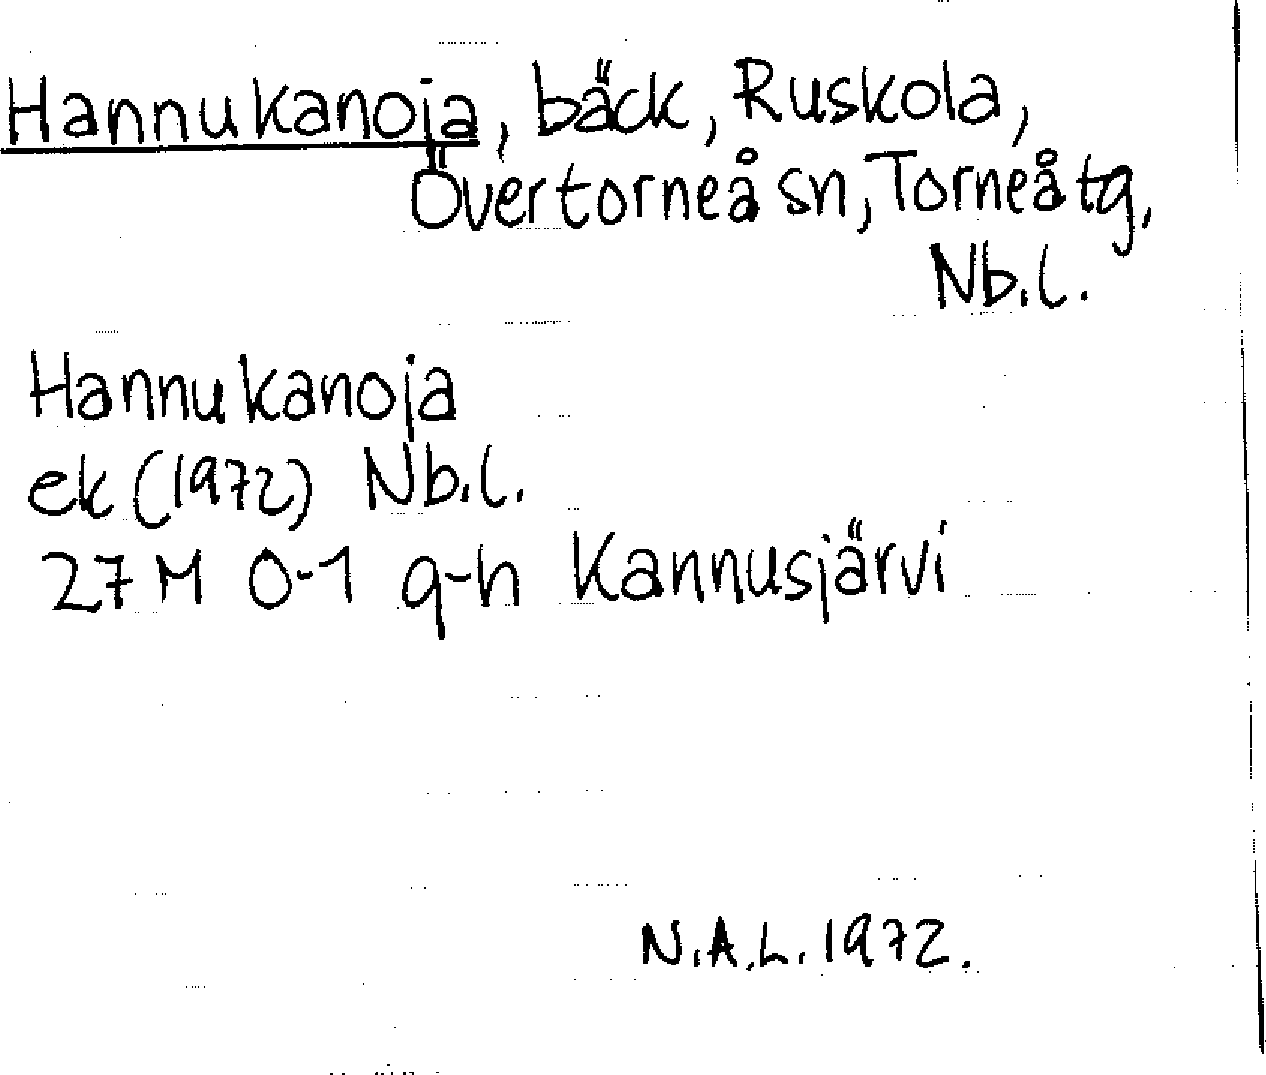 Hannukanoja, bäck, Ruskola,
Övertorneå sn, Torneå tg,
Nb.l.
Hannukanoja
ek (1972) Nb.l.
27 M 0-1 g-h Kannusjärvi
N.A.L. 1972.